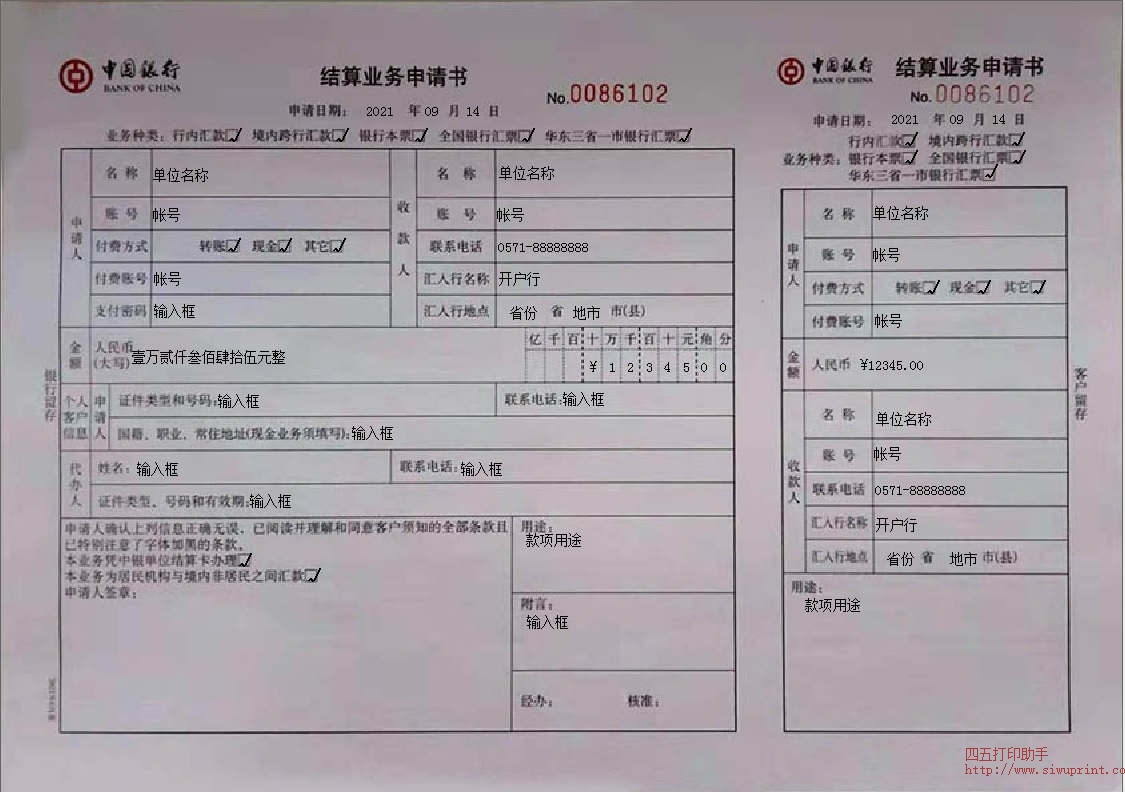 中国银行
BANK OF CHINA
结算业务申请书
No.0086102
申请日期： 2021 年 09 月 14 日
业务种类：行内汇款 境内跨行汇款 银行本票 全国银行汇票 华东三省一市银行汇票
申请人
名 称 单位名称
账 号 帐号
付费方式 转账 现金 其它
付费账号 帐号
支付密码 输入框
收款人
名 称 单位名称
账 号 帐号
联系电话 0571-88888888
汇入行名称 开户行
汇入行地点 省份 省 地市 市(县)
金额 人民币(大写) 壹万贰仟叁佰肆拾伍元整
亿 千 百 十 万 千 百 十 元 角 分
¥ 1 2 3 4 5 0 0
个人客户信息 申请人
证件类型和号码:输入框 联系电话:输入框
国籍、职业、常住地址(现金业务须填写):输入框
代办人
姓名：输入框 联系电话:输入框
证件类型、号码和有效期:输入框
申请人确认上列信息正确无误，已阅读并理解和同意客户须知的全部条款且
已特别注意了字体加黑的条款。
本业务凭中银单位结算卡办理
本业务为居民机构与境内非居民之间汇款
申请人签章：
用途：
款项用途
附言：
输入框
经办： 核准：
银行留存
中国银行
BANK OF CHINA
结算业务申请书
No.0086102
申请日期： 2021 年 09 月 14 日
行内汇款 境内跨行汇款
业务种类：银行本票 全国银行汇票
华东三省一市银行汇票
申请人
名 称 单位名称
账 号 帐号
付费方式 转账 现金 其它
付费账号 帐号
金额 人民币 ¥12345.00
收款人
名 称 单位名称
账 号 帐号
联系电话 0571-88888888
汇入行名称 开户行
汇入行地点 省份 省 地市 市(县)
用途：
款项用途
客户留存
四五打印助手
http://www.siwuprint.co